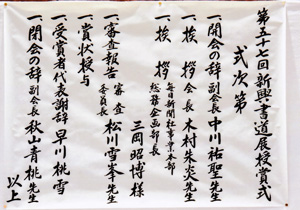 第五十七回新興書道展授賞式
式次第
一、開会の辞 副会長 中川祐聖先生
一、挨拶 会長 木村朱炎先生
一、挨拶 毎日新聞社事業本部
総務企画部長
三岡昭博様
一、審査報告 審査委員長 松川雪峯先生
一、賞状授与
一、受賞者代表謝辞 早川桃雪
一、閉会の辞 副会長 秋山青桃先生
以上